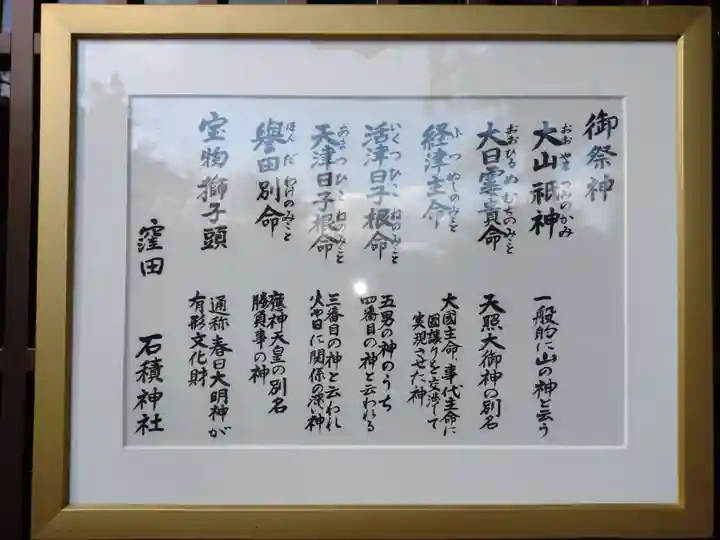 御祭神
大山祇神
おおやまつみのかみ
一般的に山の神と云う
大日霊貴命
おおひるめむちのみこと
天照大御神の別名
経津主命
ふつぬしのみこと
大國主命・事代主命に
国譲りを交渉して
実現させた神
活津日子根命
いくつひこねのみこと
五男の神のうち
四番目の神と云われる
天津日子根命
あまつひこねのみこと
三番目の神と云われ
火や日に関係の深い神
譽田別命
ほんだわけのみこと
應神天皇の別名
勝負事の神
宝物獅子頭
通称春日大明神が
有形文化財
窪田 石積神社